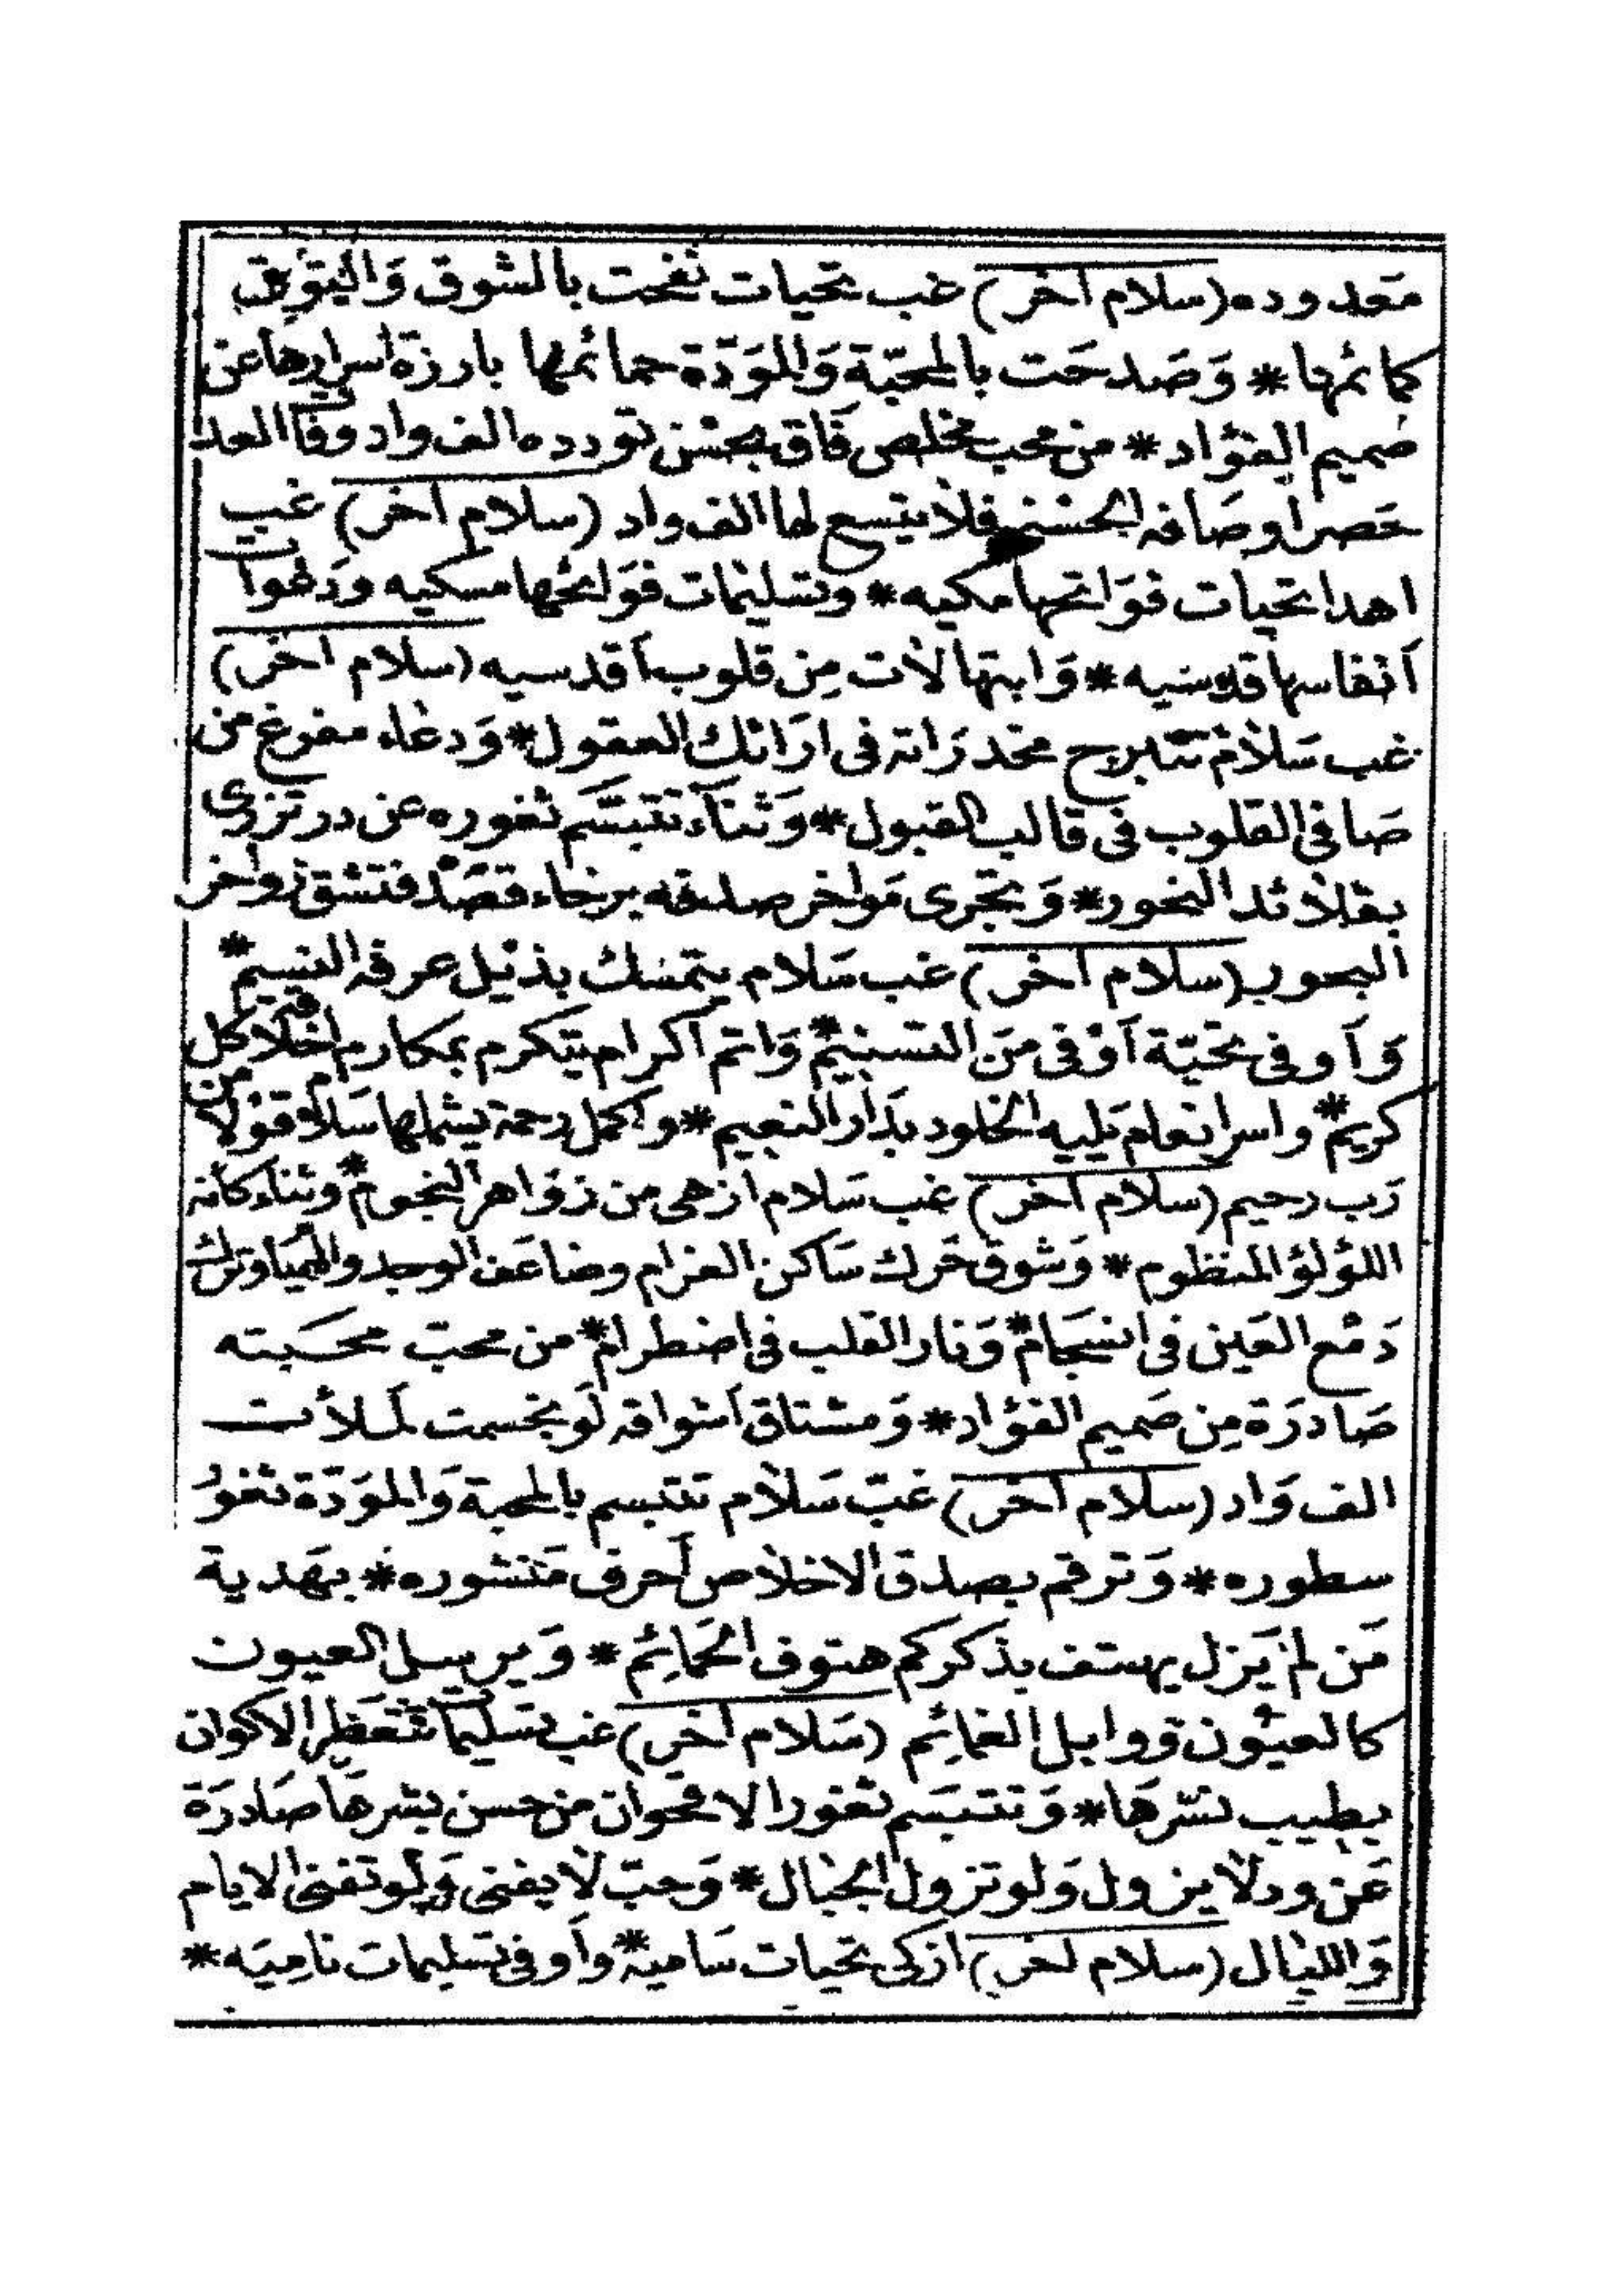 معدوده (سلام اخر) غب تحيات نفحت بالشوق وَالتوق
كمائمها * وَصَدحَت بالمحبّة وَالموَدّة حمائمها بارزة اسرارها عن
صميم الفؤاد * من محب مخلص فَاق بحسْن تودده الف واد وفى العد
حَصر اوصَافه الحسْنى فلا يتسع لها الف واد (سلام اخر) غب
اهدا تحيات فوَاتحها مكيه * وتسليمات فوَائحها مسكيه ودعوات
أنفاسها قدسيه * وَابتهالات مِن قلوب اقدسيه (سلام اخر)
غب سَلام تتبرج مخدرَاته فى ارَائك العقول * وَدعَاء مفرغ من
صَافى القلوب فى قالب القبول * وَثناء تتبسّم ثغوره عن در تزرى
بقلائد النحور * وَتجرى موَاخر صدقه برخاء قصْد فتشق زواخر
البحور (سلام اخر) غب سَلام يتمسك بذيْل عرفه النسيم *
وَأوفى تحيّة أوْفى مَن التسنيم * وَاتم اكرام يتكرم بمكارم اخلاقه كل
كريم * واسر انعام يَليه الخلود بدَار النعيم * واكمل رحمة يشملها سَلام قوْلا من
رَب رحيم (سلام اخر) غب سَلام ازهى من زوَاهر النجوم * وثناء كأنه
اللؤلؤ المنظوم * وَشوق حَرك سَاكن الغرام وضاعَف الوجد والهيَام وترك
دَمْع العَين فى انسجَام * وَنار القلب فى اضطرام * من محبّ محَبته
صَادرَة مِن صَميم الفؤاد * وَمشتاق أشواقه لَو تجسمت لَملأت
الف وَاد (سلام اخر) غبّ سَلام تتبسم بالمحبة وَالموَدّة ثغوُر
سطوره * وَترقم بصدق الاخلاص أحرف مَنشوره * بهَدية
مَن لمْ يَزل يهتف بذكركم هتوف الحَمائِم * وَيرسل العيون
كالعيُون ووابل الغمائِم (سَلام اخر) غب تسليمات تتعَطر الاكوان
بطيب نشرهَا * وَتتبسَم ثغور الاقحوان من حسن بشرهَا صَادرَة
عَن ود لا يزول وَلو تزول الجبَال * وَحبّ لا يفنى وَلو تفنى الايام
وَالليَال (سلام اخر) ازكى تحيات سَامية * وأوفى تسليمات نامِيَه *